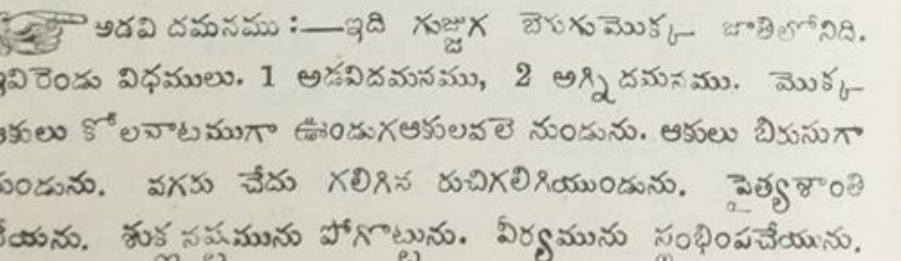 అడవి దమనము :—ఇది గుజ్జుగ బెరుగుమొక్క జాతిలోనిది.
ఇవిరెండు విధములు. 1 అడవిదమనము, 2 అగ్ని దమనము. మొక్క
ఆకులు కోలవాటముగా ఊండుగఆకులవలె నుండును. ఆకులు బిరుసుగా
నుండును. వగరు చేదు గలిగిన రుచిగలిగియుండును. పైత్యశాంతి
చేయును. శుక్ల నష్టమును పోగొట్టును. వీర్యమును స్తంభింపచేయును.